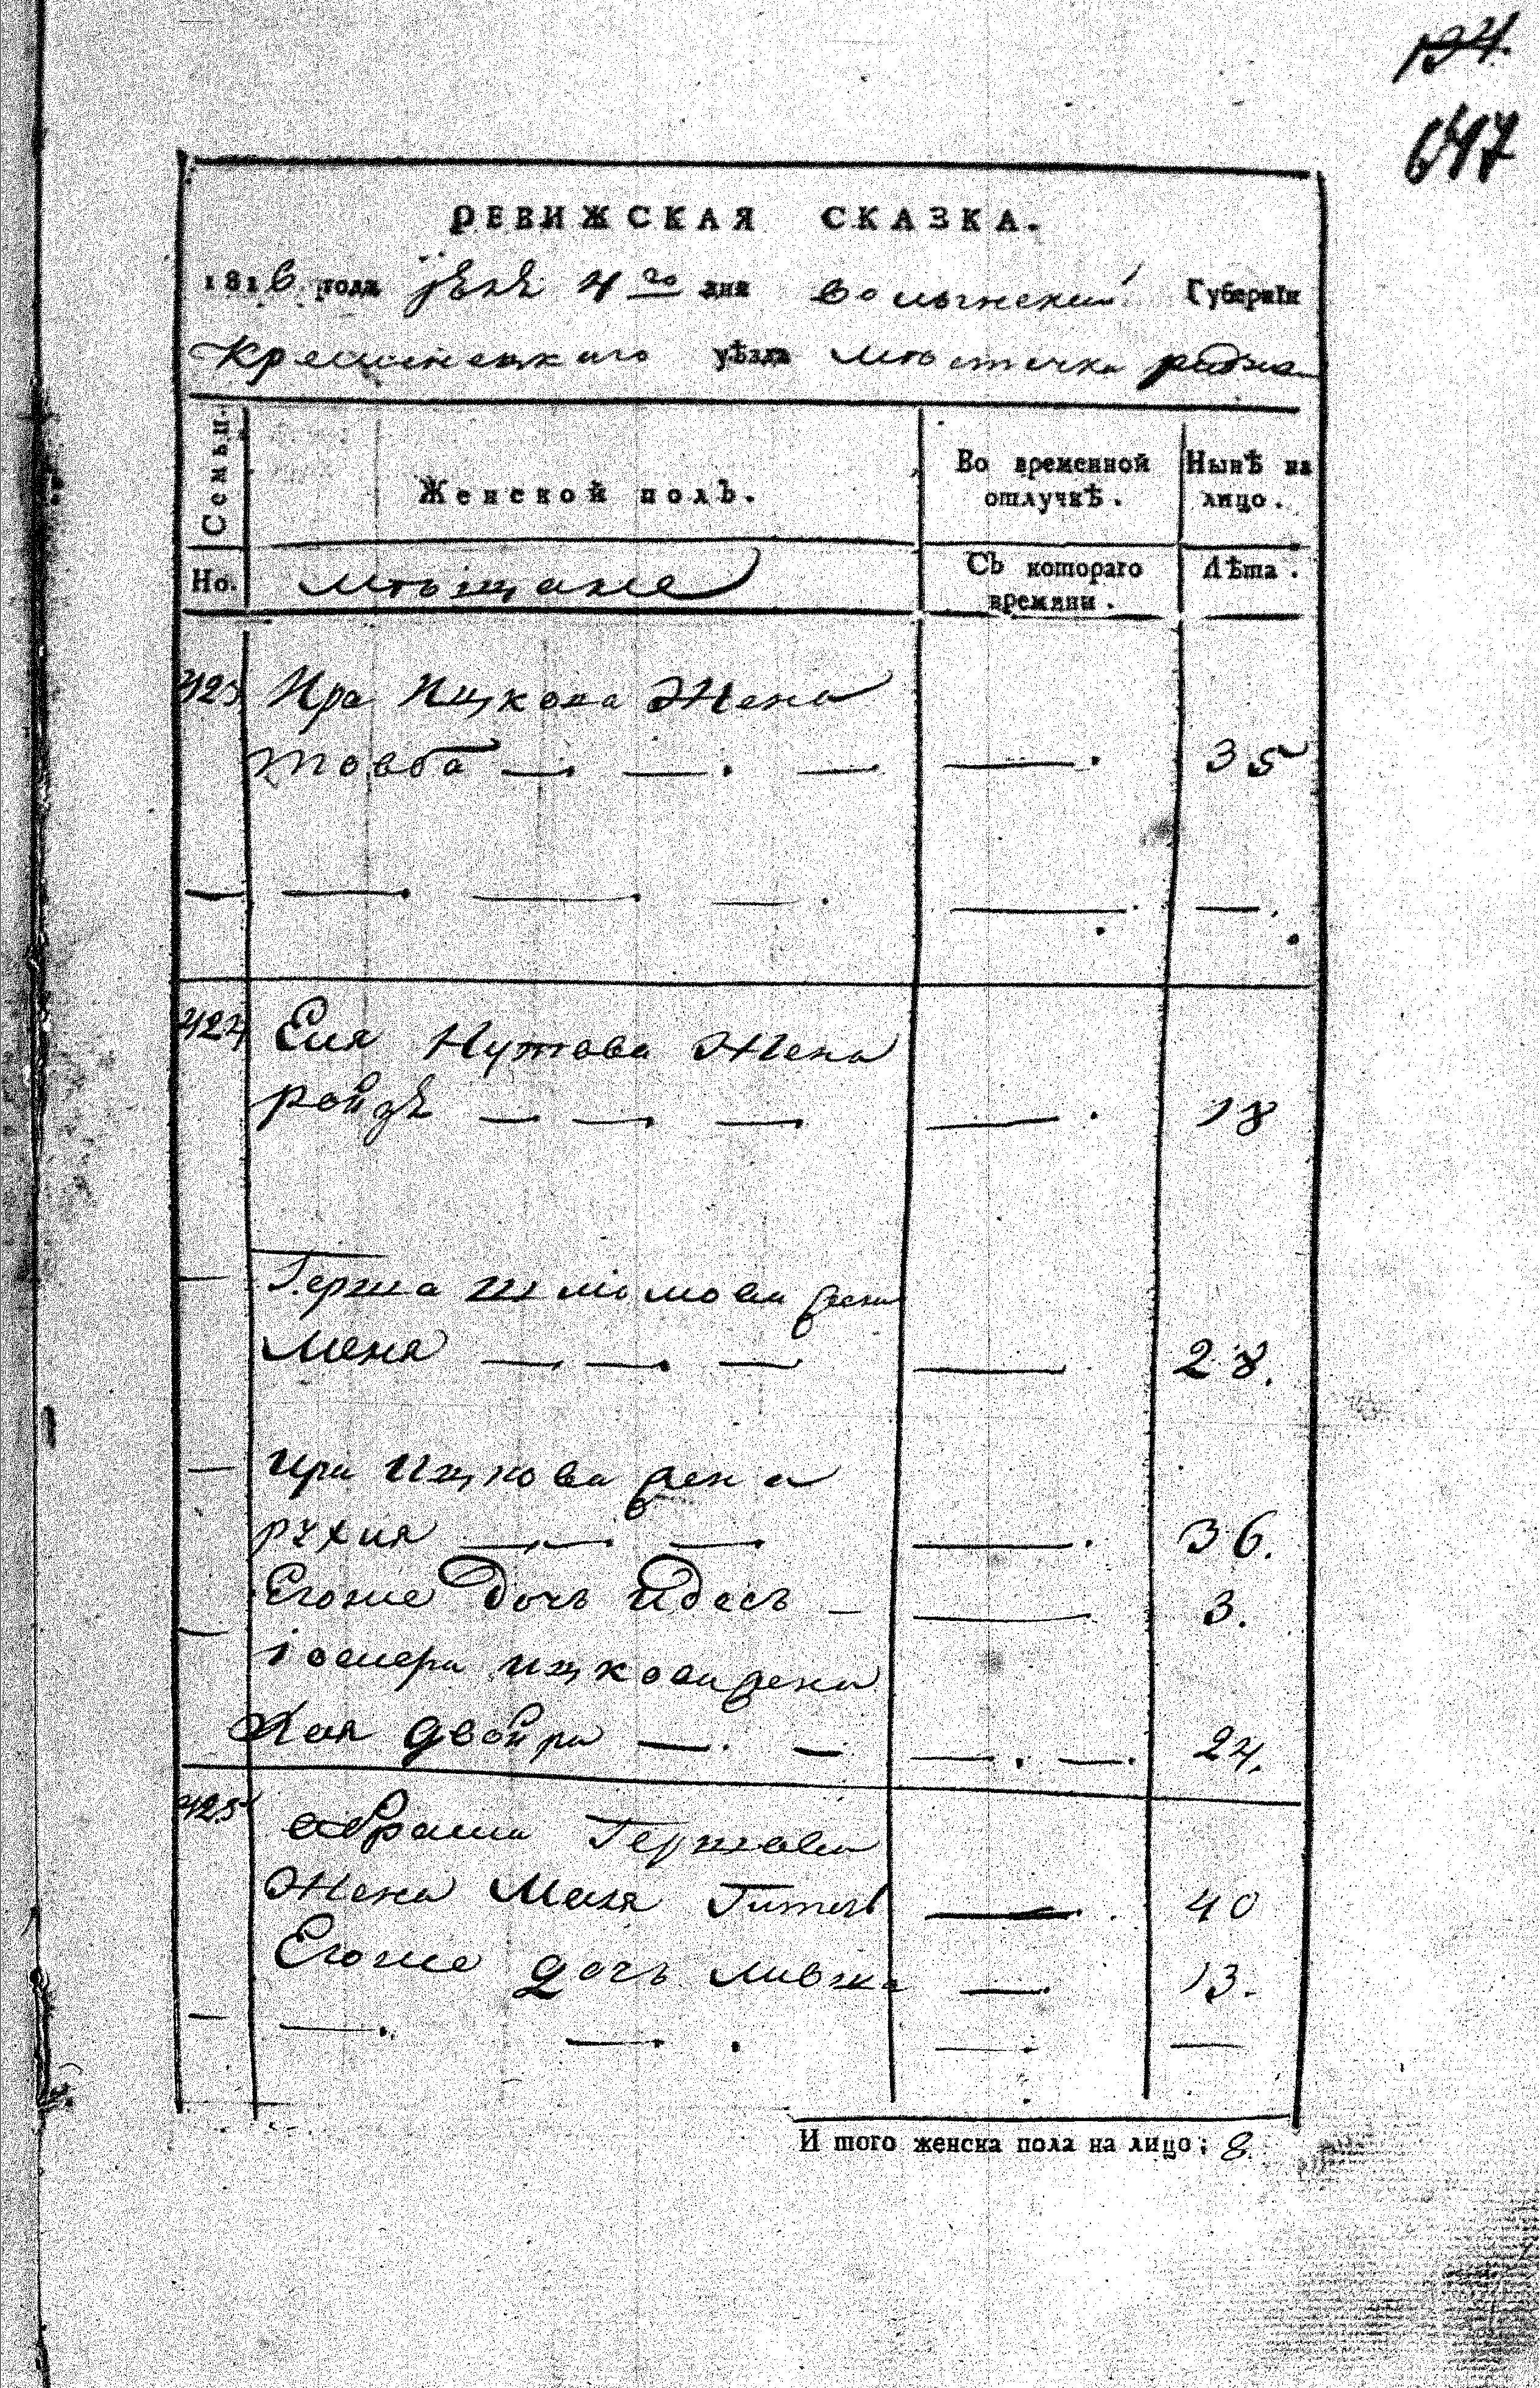 194.
647
РЕВИЖСКАЯ СКАЗКА.
1816 года 4го дня Волынской Губернїи
Кременецкаго уѣзда мѣстечка
Семьи. Женской полъ. Во временной отлучкѣ. Нынѣ на лицо.
Но. мѣщане Съ котораго времяни. Лѣта.
423 Ира Ицкова Жена
товба — — — — 35
— — — — — —
424 Еля Нутова Жена
ройзя — — — — 18
— Герша шліомова жена
Меня — — — — 28.
— Ира Ицкова жена
рухля — — — — 36.
Егоже дочь Идесъ — — 3.
— іосифа ицкова жена
Хая двойра — — — — 24.
425 абрама Гершова
Жена Маля Гитель — 40
Егоже дочь ливжа — 13.
— — — — —
И того женска пола на лицо; 8.